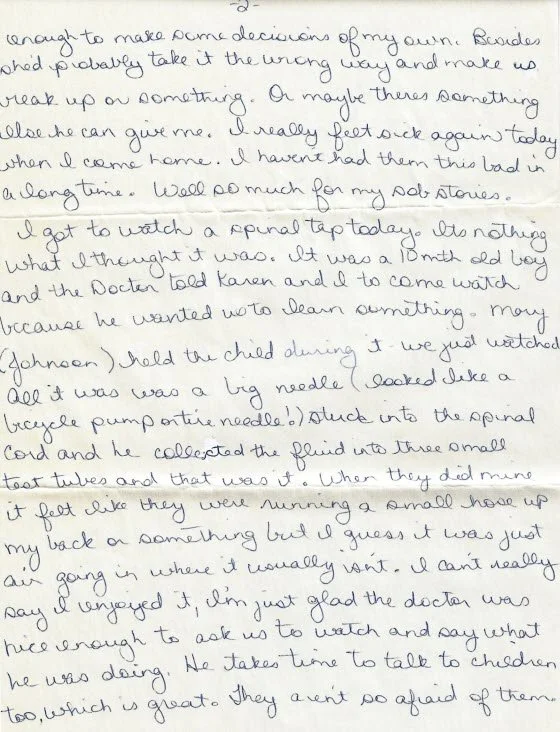 -2-
enough to make some decisions of my own. Besides
she'd probably take it the wrong way and make us
break up or something. Or maybe theres something
else he can give me. I really felt sick again today
when I came home. I havent had them this bad in
a long time. Well so much for my sob stories.
I got to watch a spinal tap today. Its nothing
what I thought it was. It was a 10 mth old boy
and the Doctor told Karen and I to come watch
because he wanted us to learn something. Mary
(Johnson) held the child during it - we just watched
All it was was a big needle (looked like a
bicycle pump or tire needle!) stuck into the spinal
cord and he collected the fluid into three small
test tubes and that was it. When they did mine
it felt like they were running a small hose up
my back or something but I guess it was just
air going in where it usually isn't. I can't really
say I enjoyed it, I'm just glad the doctor was
nice enough to ask us to watch and say what
he was doing. He takes time to talk to children
too, which is great. They aren't so afraid of them